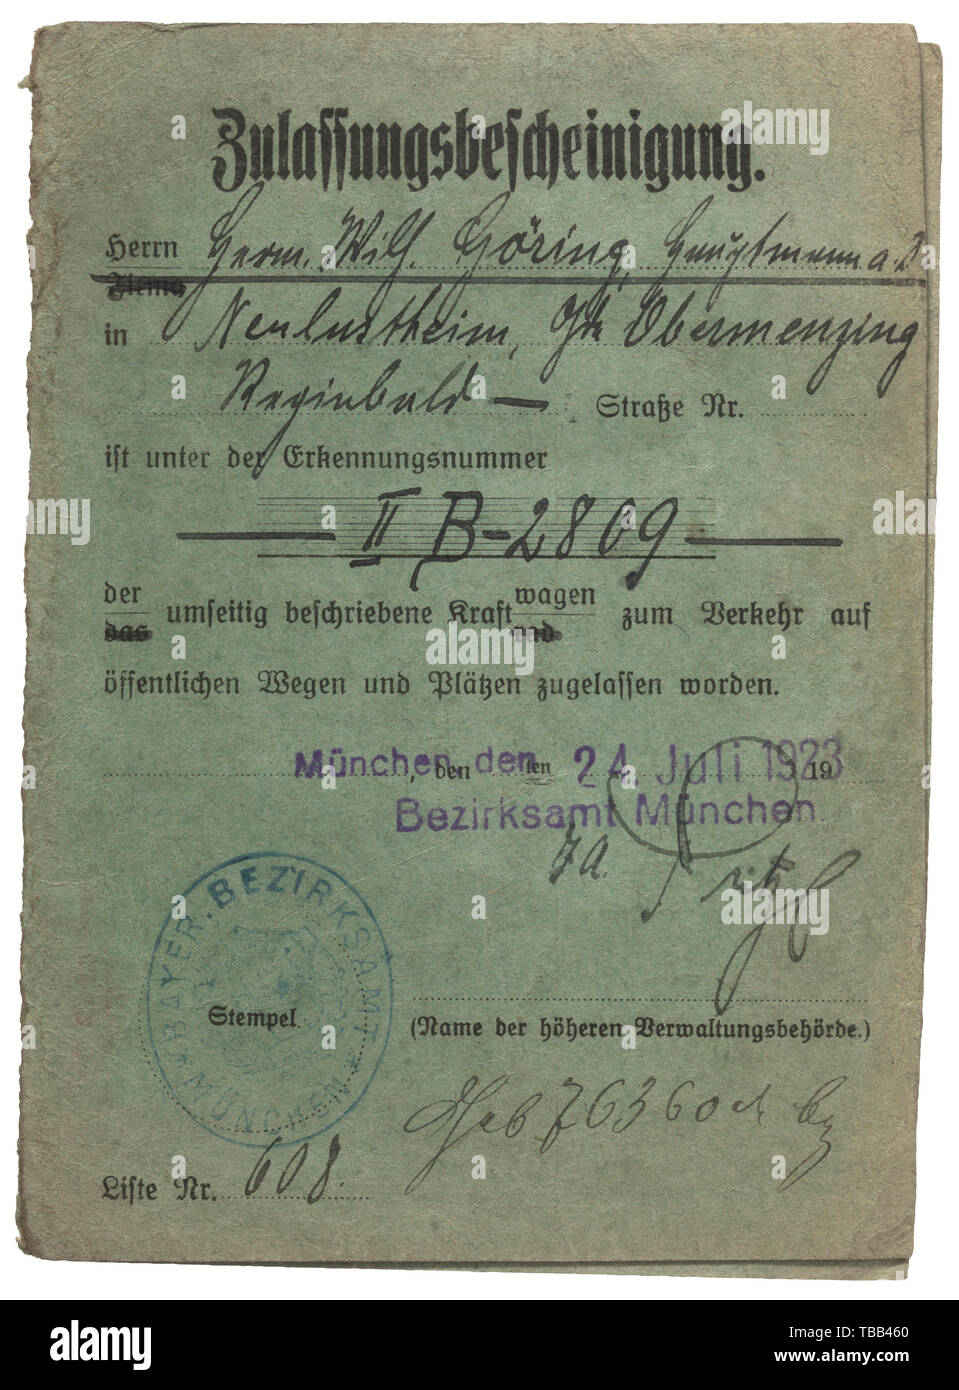 Zulassungsbescheinigung.
Herrn Herm. Wilh. Göring, Hauptmann a. D
Firma
in Neulustheim, Gde Obermenzing
Reginbald — Straße Nr.
ist unter der Erkennungsnummer
II B-2809
der
das
umseitig beschriebene Kraftwagen zum Verkehr auf
rad
öffentlichen Wegen und Plätzen zugelassen worden.
München, den den ten 24. Juli 1923 19
Bezirksamt München.
BAYER. BEZIRKSAMT
* MÜNCHEN *
Stempel
(Name der höheren Verwaltungsbehörde.)
Geb 76360
Liste Nr. 608.
alamy
alamy
alamy
alamy
a
Image ID: TBB460
www.alamy.com